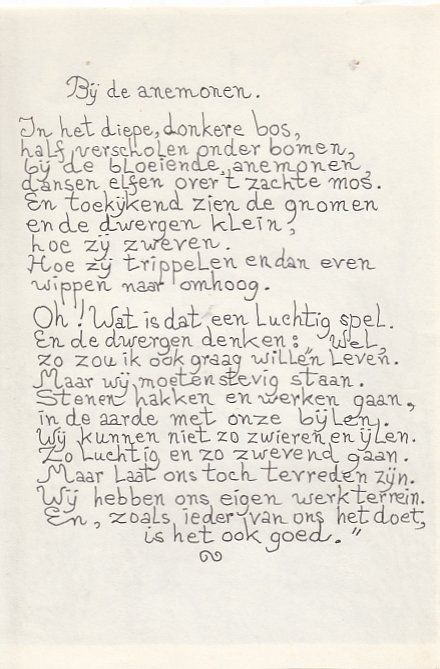 Bij de anemonen.
In het diepe, donkere bos,
half verscholen onder bomen,
bij de bloeiende anemonen,
dansen elfen over 't zachte mos.
En toekijkend zien de gnomen
en de dwergen klein,
hoe zij zweven.
Hoe zij trippelen en dan even
wippen naar omhoog.
Oh! Wat is dat een luchtig spel.
En de dwergen denken: „Wel,
zo zou ik ook graag willen leven.
Maar wij moeten stevig staan.
Stenen hakken en werken gaan,
in de aarde met onze bijlen.
Wij kunnen niet zo zwieren en ijlen.
Zo luchtig en zo zwevend gaan.
Maar laat ons toch tevreden zijn.
Wij hebben ons eigen werkterrein.
En, zoals ieder van ons het doet,
is het ook goed."